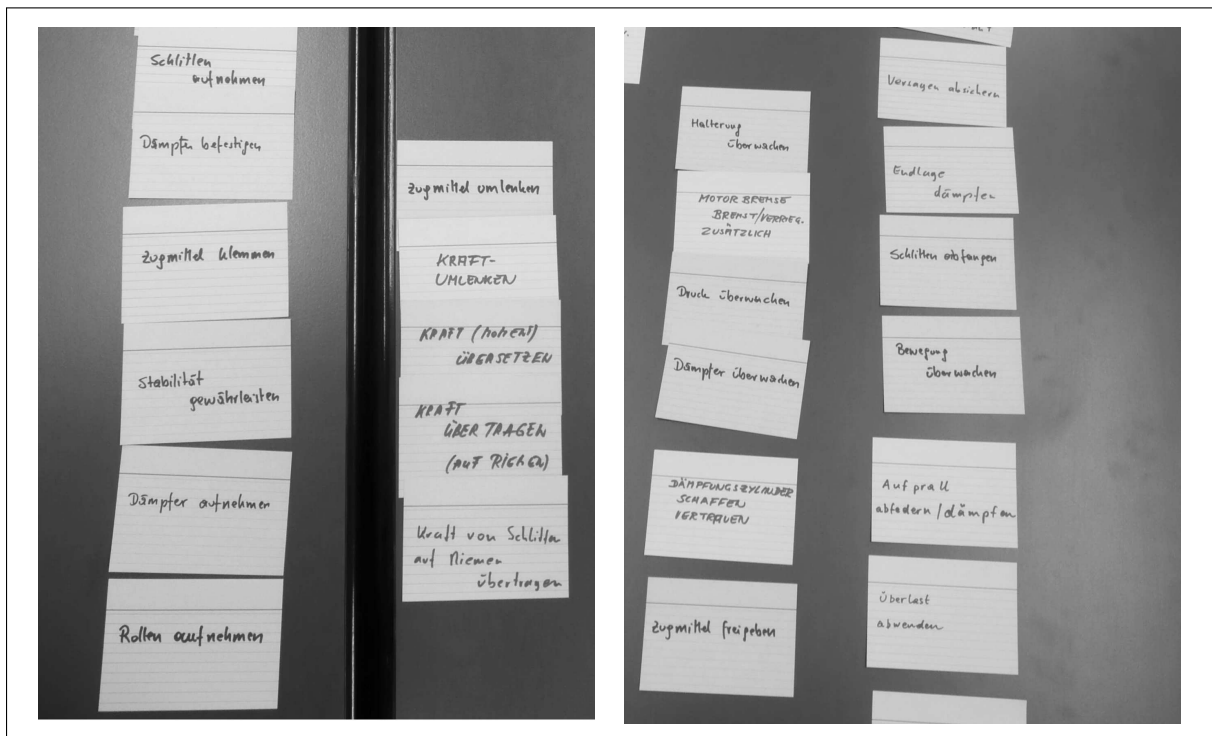 Schlitten
aufnehmen
Dämpfer befestigen
Zugmittel klemmen
Stabilität
gewährleisten
Dämpfer aufnehmen
Rollen aufnehmen
Zugmittel umlenken
KRAFT-
UMLENKEN
KRAFT
ÜBERSETZEN
KRAFT
ÜBERTRAGEN
(AUF RIEMEN)
Kraft von Schlitten
auf Riemen
übertragen
Halterung
überwachen
MOTOR BREMSE
BREMST/VERRIEG.
ZUSÄTZLICH
Druck überwachen
Dämpfer überwachen
DÄMPFUNGSZYLINDER
SCHAFFEN
VERTRAUEN
Zugmittel freigeben
absichern
Endlage
dämpfen
Schlitten abfangen
Bewegung
überwachen
Aufprall
abfedern/dämpfen
Überlast
abwenden